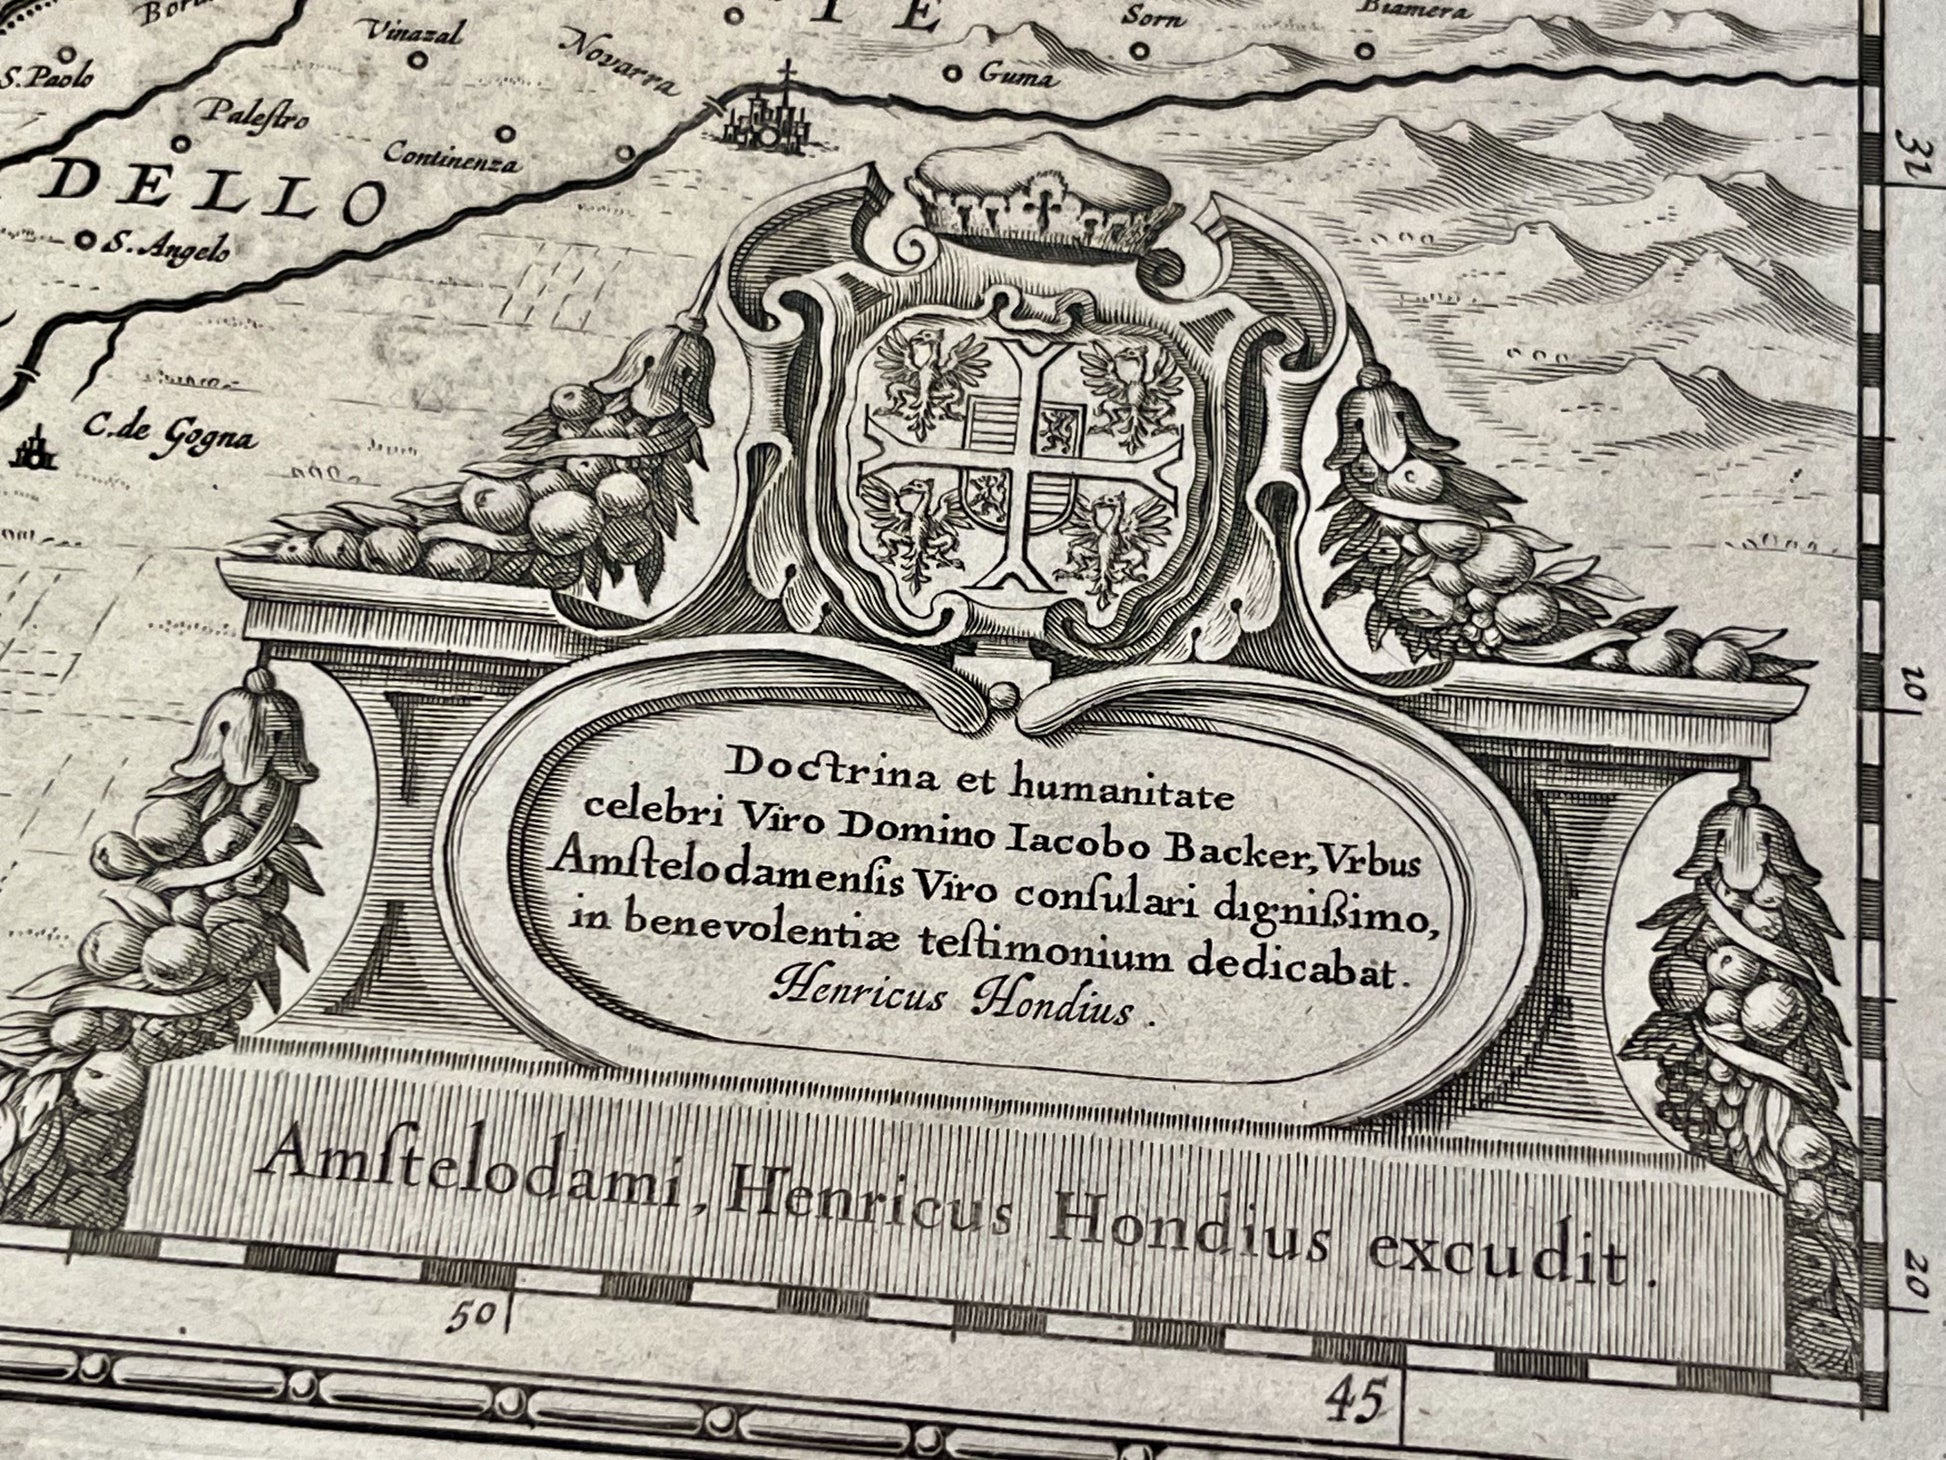 Vinazal
Novarra
IE
Sorn
Biamera
S. Paolo
Paleſtro
Guma
Continenza
DELLO
S. Angelo
C. de Gogna
31
10
20
Doctrina et humanitate
celebri Viro Domino Iacobo Backer, Vrbus
Amſtelodamenſis Viro conſulari dignißimo,
in benevolentiæ teſtimonium dedicabat.
Henricus Hondius.
Amſtelodami, Henricus Hondius excudit.
50
45